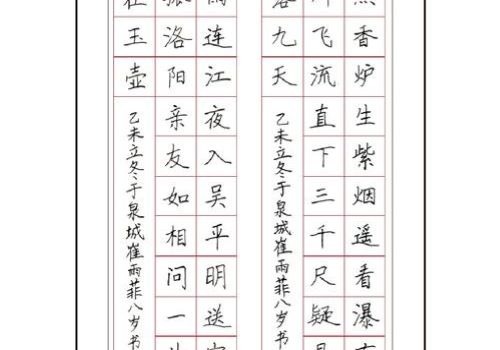 香炉生紫烟遥看瀑
川飞流直下三千尺疑
落九天
乙未立冬于泉城崔雨菲八岁书
雨连江夜入吴平明送
洛阳亲友如相问一
在玉壶
乙未立冬于泉城崔雨菲八岁书